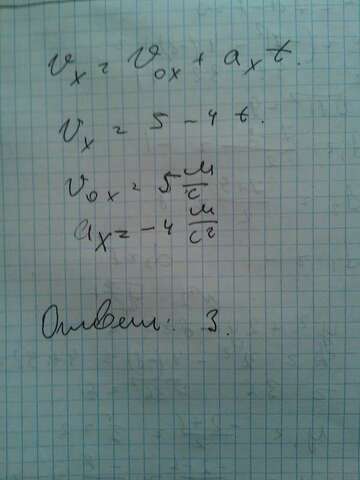 Vx = Vox + ax t.
Vx = 5 - 4 t.
Vox = 5 м/с
ax = -4 м/с²
Ответ: 3.